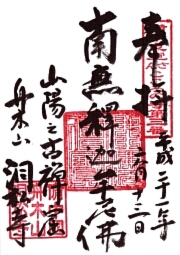 奉拝
平成二十一年
六月十三日
南無釋迦牟尼佛
山陽之古禅窟
舟木山
洞松寺